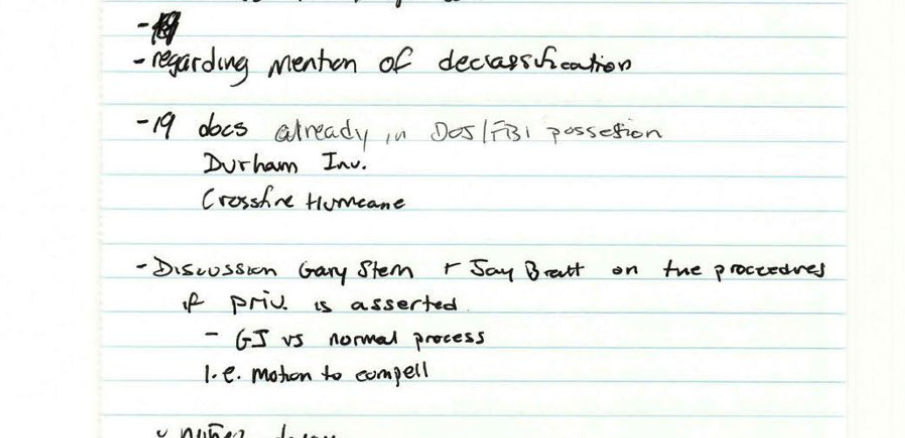 - regarding mention of declassification
- 19 docs already in DOJ/FBI possesion
Durham Inv.
Crossfire Hurricane
- Discussion Gary Stern + Jay Bratt on the procedures
if priv. is asserted
- GJ vs normal process
I.e. motion to compell